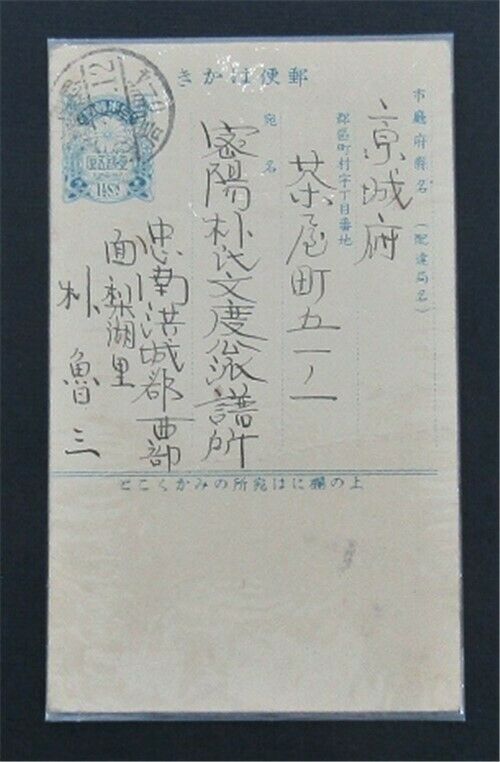 郵便はかき
市廳府縣名（配達局名）
京城府
郡區町村字丁目番地
茶屋町五一ノ一
宛名
密陽朴氏文度公派譜所
忠南洪城郡西部
面梨湖里
朴魯三
1½Sn
上の欄には宛所のみかくこと